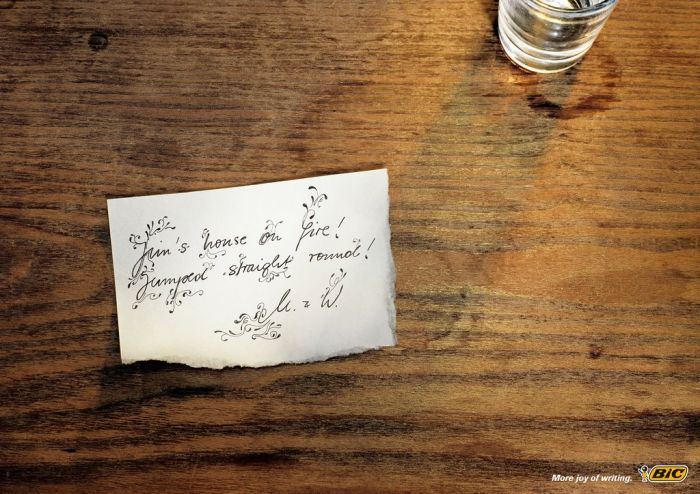 Jim's house on fire!
Jumped straight round!
M. + W.
More joy of writing.
BIC